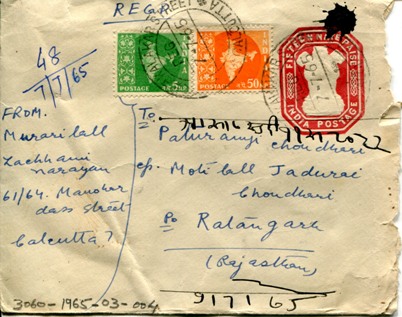 REGD
48
7/7/65
FIFTEEN NP
INDIA POSTAGE
POSTAGE
POSTAGE
50
FROM.
Murari lall
Lachhami
narayan
61/64. Manohar
dass street
Calcutta 7
To
Paturamji Choudhari
c/o Moti lall Jadurai
Choudhari
Po Ratangarh
(Rajasthan)
9/7/65
3060-1965-03-004